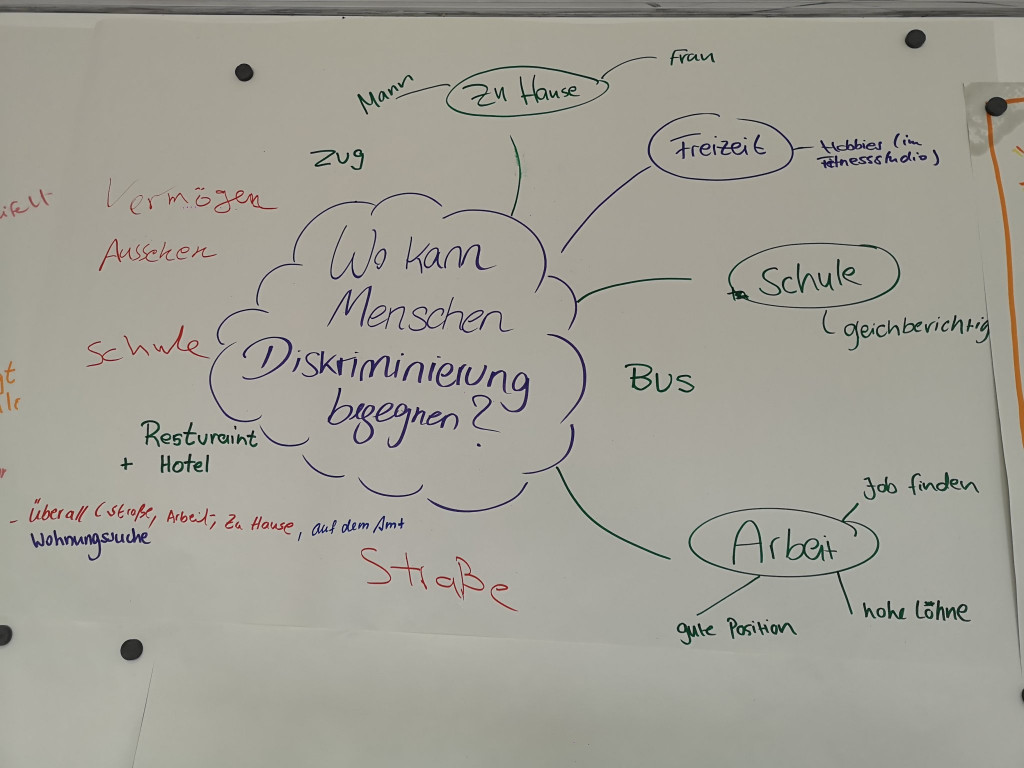 Frau
Mann
Zu Hause
Freizeit
Hobbies (im
Fitnessstudio)
Zug
Vermögen
Aussehen
Schule
Wo kann
Menschen
Diskriminierung
begegnen?
Schule
geichberichtig
Bus
Resturaint
+ Hotel
- Überall (Straße, Arbeit, Zu Hause, auf dem Amt
Wohnungssuche
Straße
Job finden
Arbeit
gute Position
hohe Löhne